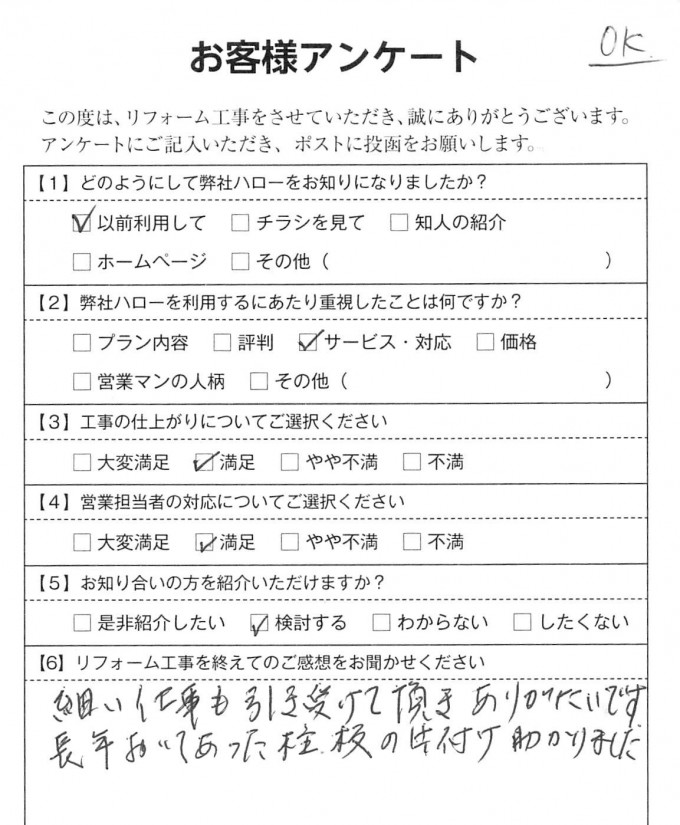 OK.
お客様アンケート
この度は、リフォーム工事をさせていただき、誠にありがとうございます。
アンケートにご記入いただき、ポストに投函をお願いします。
【1】どのようにして弊社ハローをお知りになりましたか？
☑以前利用して □チラシを見て □知人の紹介
□ホームページ □その他（ ）
【2】弊社ハローを利用するにあたり重視したことは何ですか？
□プラン内容 □評判 ☑サービス・対応 □価格
□営業マンの人柄 □その他（ ）
【3】工事の仕上がりについてご選択ください
□大変満足 ☑満足 □やや不満 □不満
【4】営業担当者の対応についてご選択ください
□大変満足 ☑満足 □やや不満 □不満
【5】お知り合いの方を紹介いただけますか？
□是非紹介したい ☑検討する □わからない □したくない
【6】リフォーム工事を終えてのご感想をお聞かせください
細い仕事も引き受けて頂きありがたいです
長年おいてあった柱、板の片付け助かりました